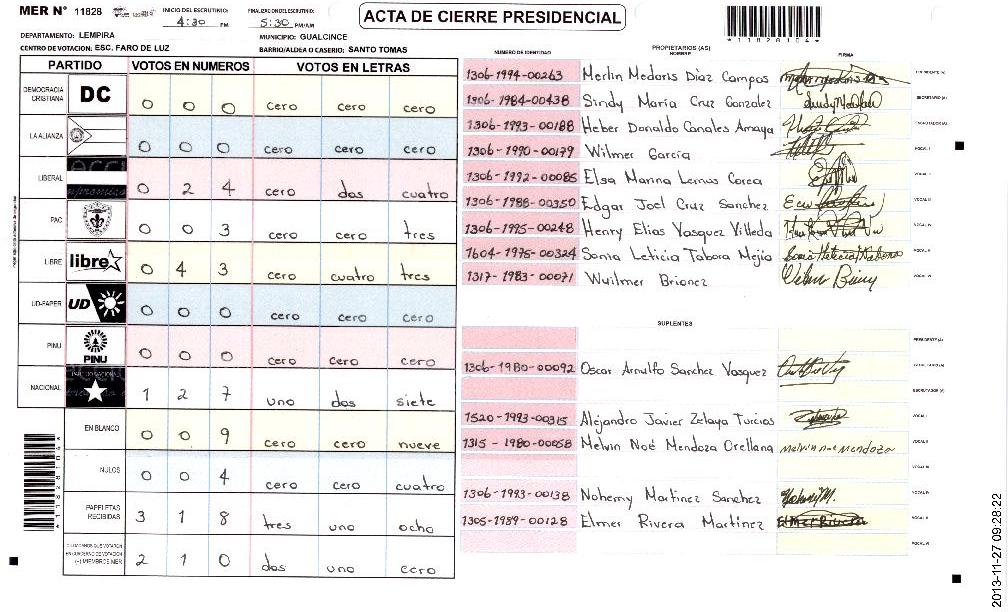 MER N° 11828
INICIO DEL ESCRUTINIO: 4:30 PM
FINALIZACION ESCRUTINIO: 5:30 PM/AM
ACTA DE CIERRE PRESIDENCIAL
*11828104*
DEPARTAMENTO: LEMPIRA
MUNICIPIO: GUALCINCE
CENTRO DE VOTACION: ESC. FARO DE LUZ
BARRIO/ALDEA O CASERIO: SANTO TOMAS
PARTIDO VOTOS EN NUMEROS VOTOS EN LETRAS
DEMOCRACIA CRISTIANA DC 0 0 0 cero cero cero
LA ALIANZA 0 0 0 cero cero cero
LIBERAL 0 2 4 cero dos cuatro
PAC 0 0 3 cero cero tres
LIBRE libre 0 4 3 cero cuatro tres
UD-FAPER UD 0 0 0 cero cero cero
PINU PINU 0 0 0 cero cero cero
NACIONAL 1 2 7 uno dos siete
EN BLANCO 0 0 9 cero cero nueve
NULOS 0 0 4 cero cero cuatro
PAPELETAS RECIBIDAS 3 1 8 tres uno ocho
CIUDADANOS QUE VOTARON EN CUADERNO DE VOTACION (+) MIEMBROS MER 2 1 0 dos uno cero
NUMERO DE IDENTIDAD
PROPIETARIOS (AS)
NOMBRE
FIRMA
1306-1994-00263 Merlin Medaris Diaz Campos PRESIDENTE (A)
1306-1984-00438 Sindy María Cruz Gonzalez SECRETARIO (A)
1306-1993-00188 Heber Donaldo Canales Amaya ESCRUTADOR (A)
1306-1990-00179 Wilmer García VOCAL I
1306-1992-00085 Elsa Marina Lemus Corea VOCAL II
1306-1988-00350 Edgar Joel Cruz Sanchez VOCAL III
1306-1995-00248 Henry Elias Vasquez Villeda VOCAL IV
1604-1975-00324 Sonia Leticia Tabora Mejía VOCAL V
1317-1983-00071 Wuilmer Brionez VOCAL VI
SUPLENTES
PRESIDENTE (A)
1306-1980-00092 Oscar Arnulfo Sanchez Vasquez SECRETARIO (A)
ESCRUTADOR (A)
1520-1993-00315 Alejandro Javier Zelaya Turcios VOCAL I
1315-1980-00058 Melvin Noé Mendoza Orellana Melvin noe Mendoza VOCAL II
VOCAL III
1306-1993-00138 Nohemy Martinez Sanchez Nohemy M. VOCAL IV
1305-1989-00128 Elmer Rivera Martínez Elmer Rivera VOCAL V
VOCAL VI
2013-11-27 09:28:22